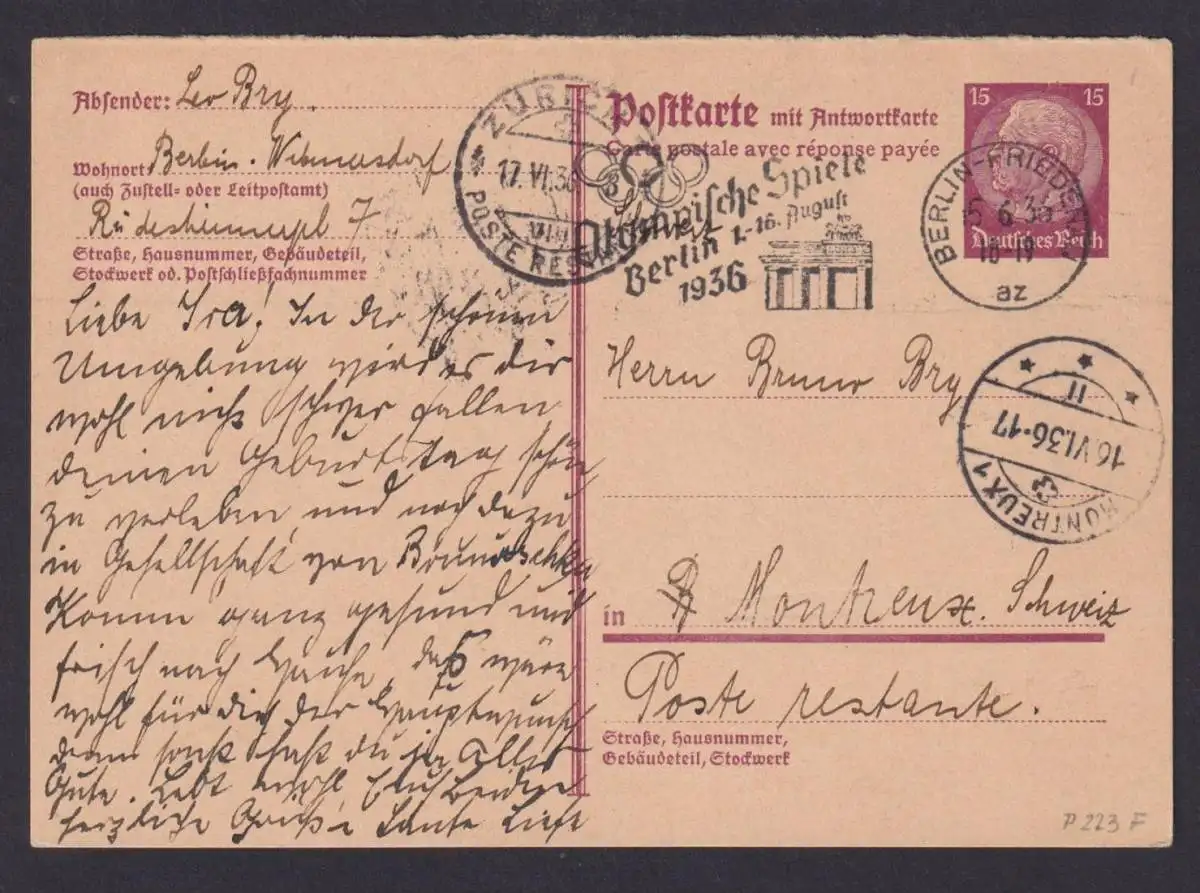 Absender: Leo Bry.
Wohnort Berlin-Wilmersdorf
(auch Zustell- oder Leitpostamt)
Rüdesheimerpl 7
Straße, Hausnummer, Gebäudeteil,
Stockwerk od. Postschließfachnummer
Liebe Ira! In der schönen
Umgebung wird es dir
wohl nicht schwer fallen
deinen Geburtstag schön
zu verleben und noch dazu
in Gesellschaft von
Komm ganz gesund und
frisch nach Hause, das wäre
wohl für dich der Hauptwunsch
denn sonst hast du ja alles
Gute. Lebt wohl Euch beiden
herzliche Grüße Tante
ZÜRICH
17.VI.36
POSTE RESTANTE
Postkarte mit Antwortkarte
Carte postale avec réponse payée
Olympische Spiele
Berlin 1.-16. August
1936
15 15
Deutsches Reich
BERLIN-FRIEDENAU
5.6.36
18-19
az
Herrn Bruno Bry
MONTREUX 1
16.VI.36-17
II
in Montreux. Schweiz
Poste restante.
Straße, Hausnummer,
Gebäudeteil, Stockwerk
P 223 F